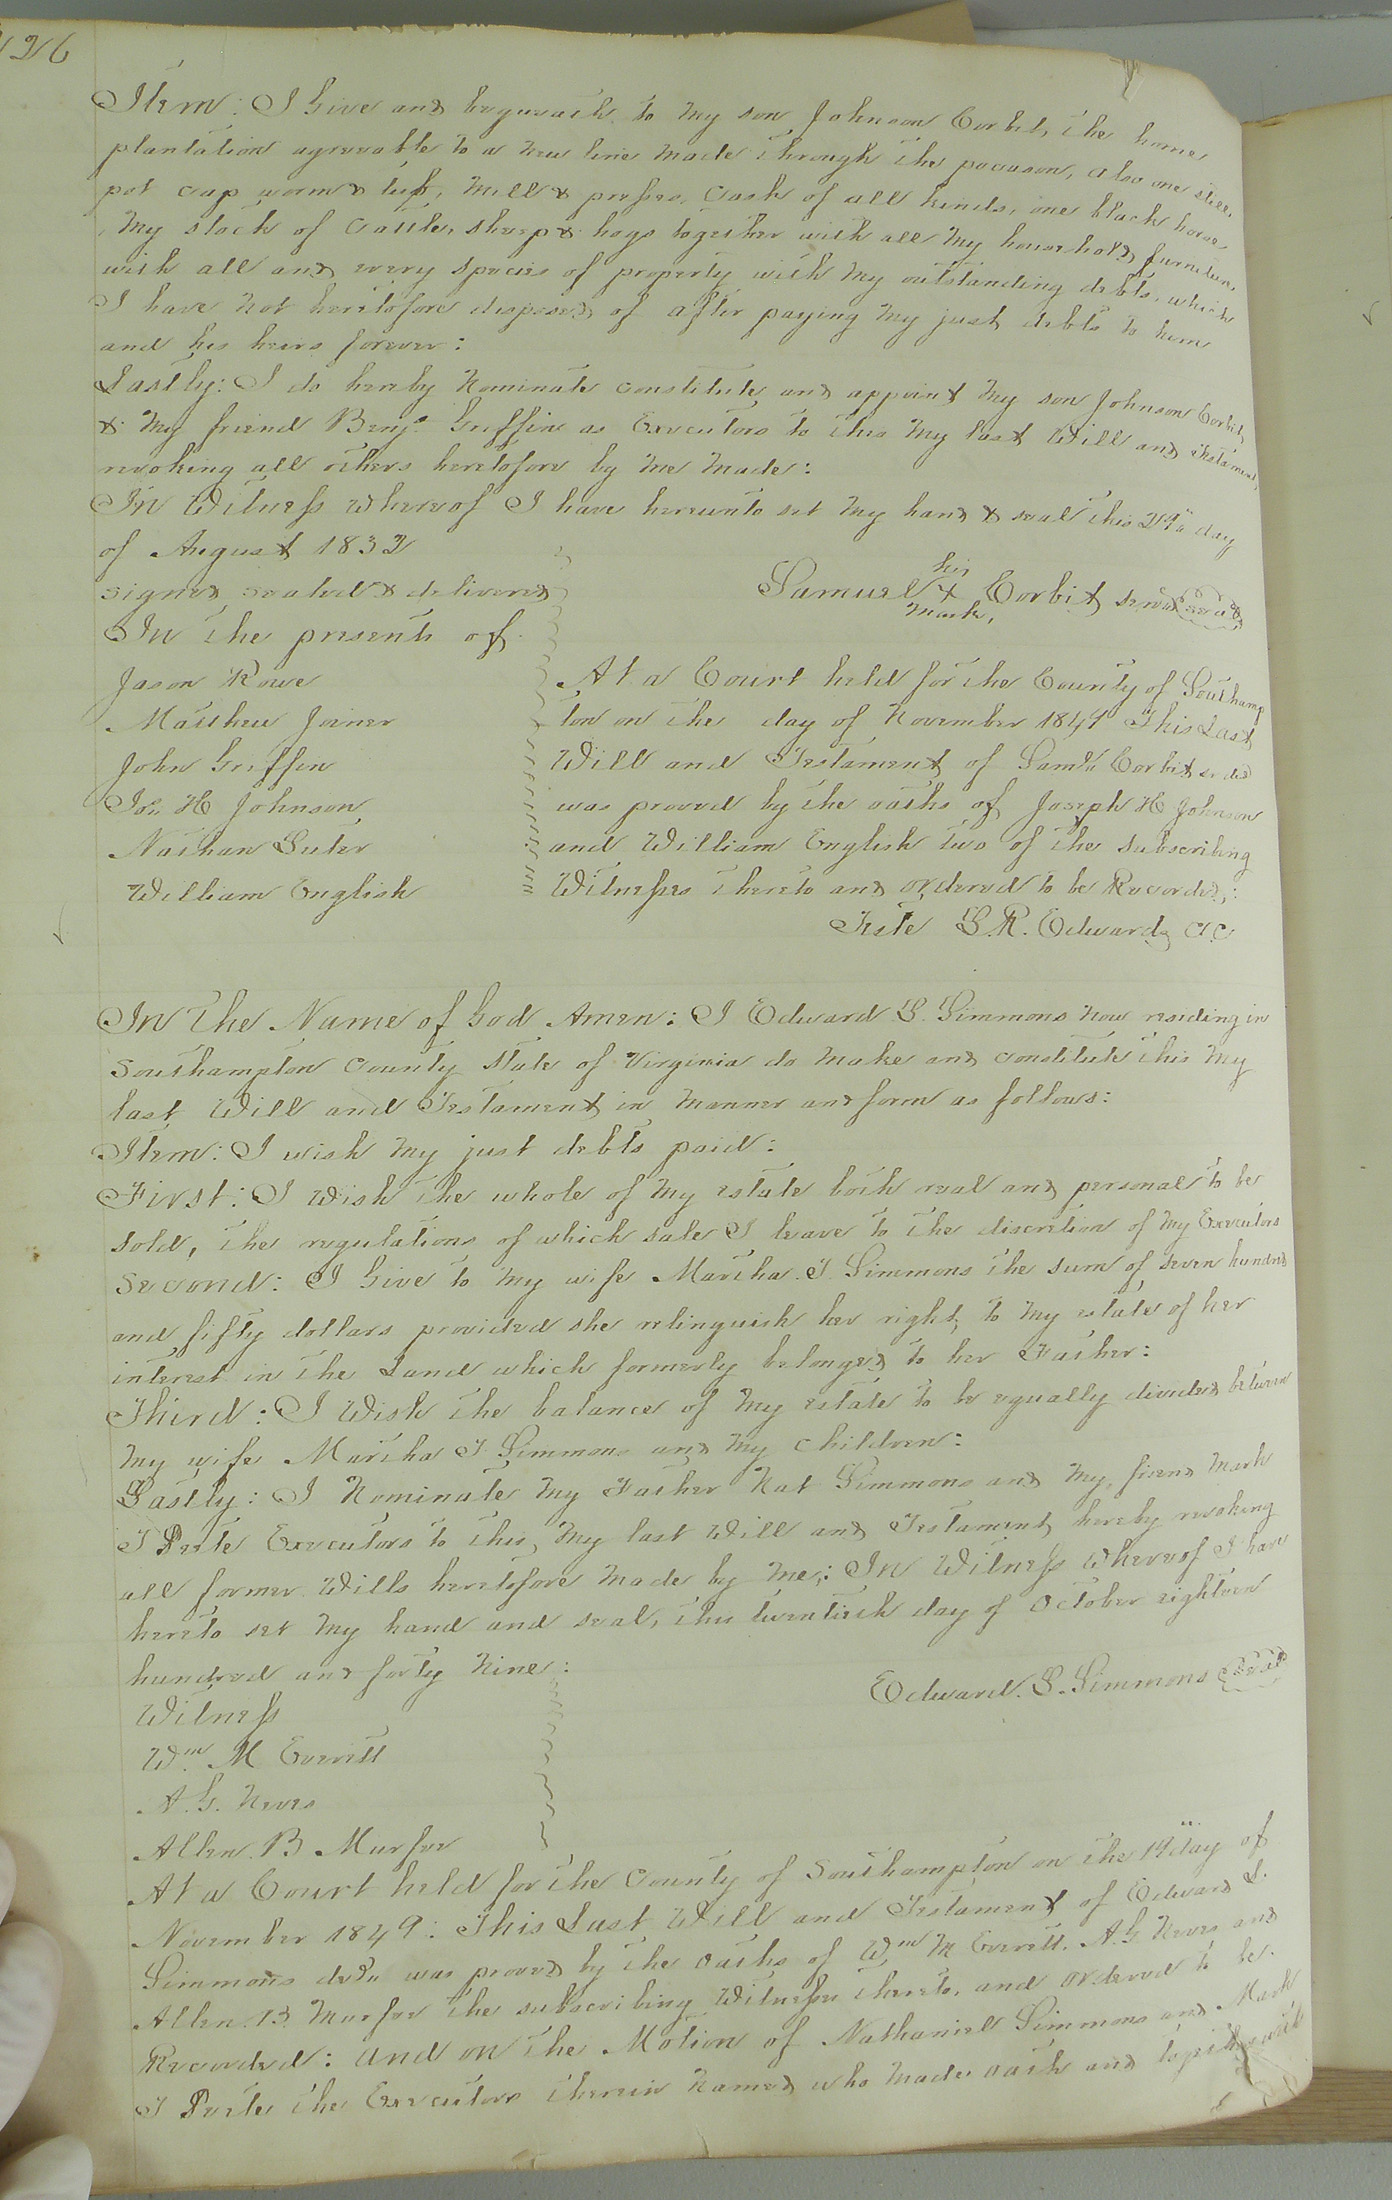 126
Item: I Give and bequeath to my son Johnson Corbit, the home
plantation agreeable to a new line made through the pocuson, also one still,
pot cap worm & tub, mill & presses, cask of all kinds, one black horse
my stock of cattle, sheep & hogs together with all my household furniture,
with all and every species of property with my outstanding debts, which
I have not heretofore disposed of after paying my just debts to him
and his heirs forever:
Lastly: I do hereby nominate constitute and appoint my son Johnson Corbit,
& my friend Benja. Griffin as Executors to this my last Will and testament,
revoking all others heretofore by me made:
In Witness whereof I have hereunto set my hand & seal this day
of August 1832
signed sealed & delivered
his
Samuel X Corbit senr seal
mark,
In the presents of
Jason Rowe
Matthew Joiner
John Griffin
Jos. H Johnson
Nathan Suter
William English
At a Court held for the County of Southamp
ton on the day of November 1849 This Last
Will and Testament of Saml. Corbit sr decd
was proved by the oaths of Joseph H Johnson
and William English two of the subscribing
Witnesses thereto and ordered to be Recorded;:
Teste L.R. Edwards CC
In The Name of God Amen: I Edward S. Simmons now residing in
Southampton County State of Virginia do make and constitute this my
last Will and Testament in manner and form as follows:
Item: I wish my just debts paid:
First: I wish the whole of my estate both real and personal to be
sold, the regulations of which sale I leave to the discretion of my Executors
Second: I Give to my wife Martha T. Simmons the sum of seven hundred
and fifty dollars provided she relinquish her right, to my estate of her
interest in the Land which formerly belonged to her Father:
Third: I Wish the balance of my estate to be equally divided between
my wife Martha T. Simmons and my children:
Lastly: I Nominate my Father Nat Simmons and my friend Mark
T Peete Executors to this, my last Will and Testament, hereby revoking
all former Wills heretofore made by me;: In Witness whereof I have
hereto set my hand and seal, this twentieth day of October eighteen
hundred and forty nine:
Edward. S. Simmons seal
Witness
Wm. M Everitt
A.G. Neves
Allen. B Murfee
At a Court held for the County of Southampton on the 19" day of
November 1849: This Last Will and Testament of Edward S.
Simmons decd. was proved by the oaths of Wm M Everitt. A.G Neves and
Allen. B Murfee the subscribing Witnesses thereto, and ordered to be
Recorded: and on the Motion of Nathaniel Simmons and Mark
T Peete the Executors therein named who made oath and together with